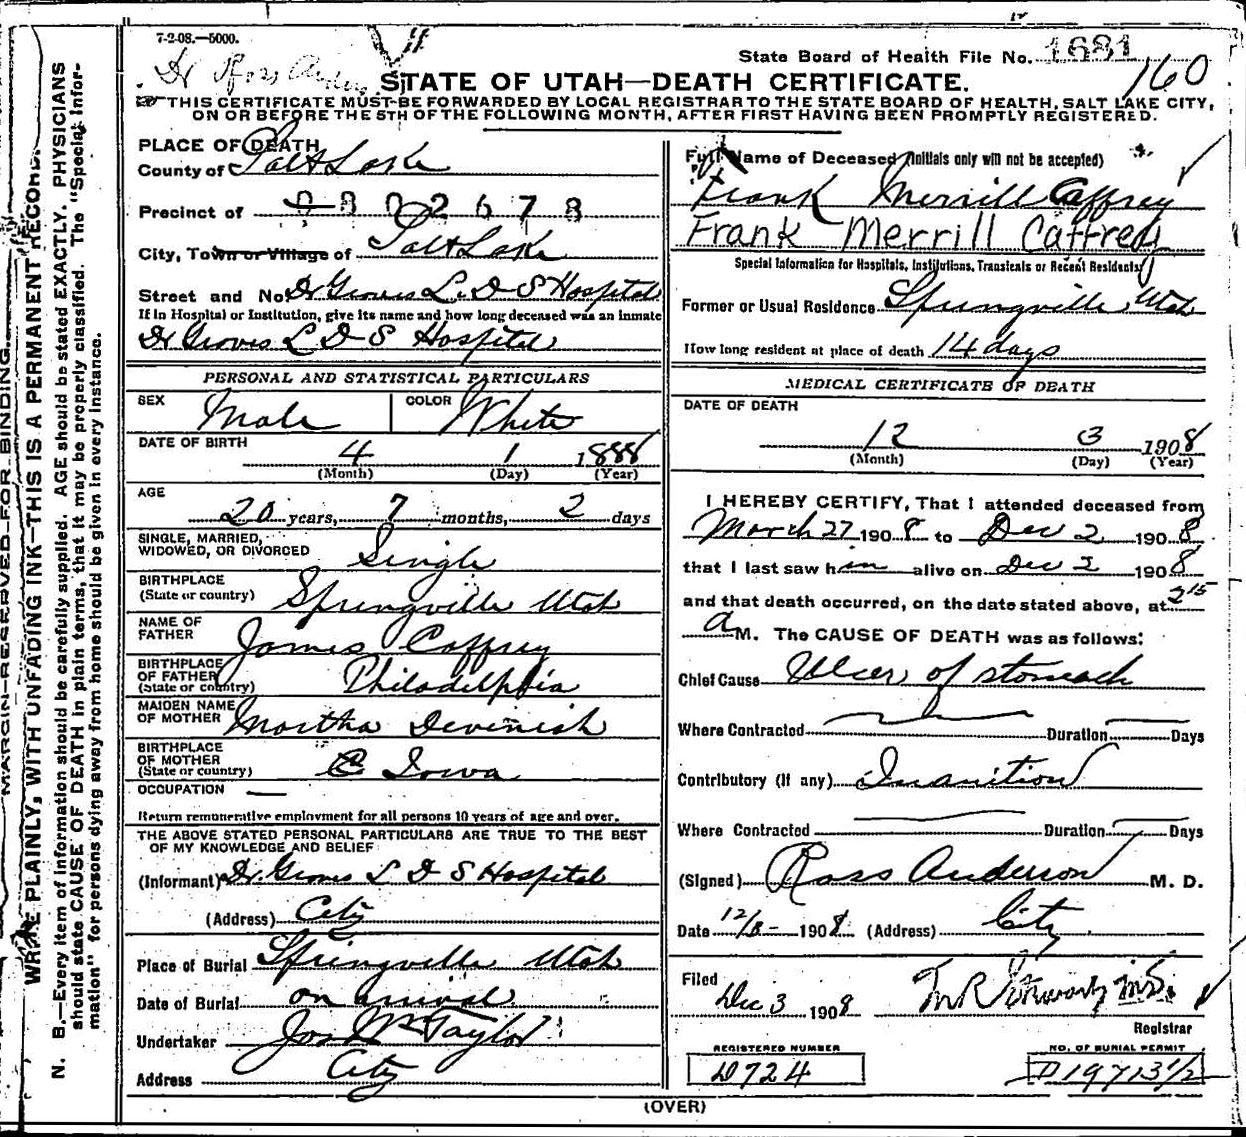 7-2-08.—5000.
Dr Ross
State Board of Health File No. 1681
160
STATE OF UTAH—DEATH CERTIFICATE.
THIS CERTIFICATE MUST BE FORWARDED BY LOCAL REGISTRAR TO THE STATE BOARD OF HEALTH, SALT LAKE CITY,
ON OR BEFORE THE 5TH OF THE FOLLOWING MONTH, AFTER FIRST HAVING BEEN PROMPTLY REGISTERED.
PLACE OF DEATH
County of Salt Lake
Precinct of 0802678
City, Town or Village of Salt Lake
Street and No. Dr Groves L. D S Hospital
If in Hospital or Institution, give its name and how long deceased was an inmate
Dr Groves L D S Hospital
PERSONAL AND STATISTICAL PARTICULARS
SEX Male COLOR White
DATE OF BIRTH
4 1 1888
(Month) (Day) (Year)
AGE
20 years, 7 months, 2 days
SINGLE, MARRIED,
WIDOWED, OR DIVORCED Single
BIRTHPLACE
(State or country) Springville Utah
NAME OF
FATHER James Caffrey
BIRTHPLACE
OF FATHER
(State or country) Philadelphia
MAIDEN NAME
OF MOTHER Martha Devenish
BIRTHPLACE
OF MOTHER
(State or country) Iowa
OCCUPATION —
Return remunerative employment for all persons 10 years of age and over.
THE ABOVE STATED PERSONAL PARTICULARS ARE TRUE TO THE BEST
OF MY KNOWLEDGE AND BELIEF
(Informant) Dr. Groves L D S Hospital
(Address) City
Place of Burial Springville Utah
Date of Burial on arrival
Undertaker Jos Wm Taylor
Address City
Full Name of Deceased (Initials only will not be accepted)
Frank Merrill Caffrey
Frank Merrill Caffrey
Special Information for Hospitals, Institutions, Transients or Recent Residents
Former or Usual Residence Springville Utah
How long resident at place of death 14 days
MEDICAL CERTIFICATE OF DEATH
DATE OF DEATH
12 3 1908
(Month) (Day) (Year)
I HEREBY CERTIFY, That I attended deceased from
March 27 1908 to Dec 2 1908
that I last saw him alive on Dec 2 1908
and that death occurred, on the date stated above, at 2 15
A M. The CAUSE OF DEATH was as follows:
Chief Cause Ulcer of stomach
Where Contracted Duration Days
Contributory (if any) Inanition
Where Contracted Duration Days
(Signed) Ross Anderson M. D.
Date 12/3- 1908 (Address) City
Filed
Dec 3 1908
Registrar
REGISTERED NUMBER
D724
NO. OF BURIAL PERMIT
D19713 1/2
(OVER)
MARGIN RESERVED FOR BINDING.
WRITE PLAINLY, WITH UNFADING INK—THIS IS A PERMANENT RECORD.
N. B.—Every item of information should be carefully supplied. AGE should be stated EXACTLY. PHYSICIANS
should state CAUSE OF DEATH in plain terms, that it may be properly classified. The "Special Infor-
mation" for persons dying away from home should be given in every instance.